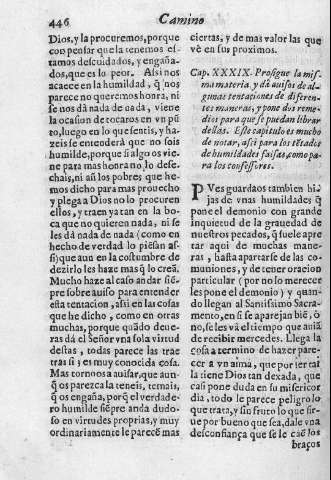 446
Camino
Dios, y la procuremos, porque
con pensar que la tenemos es-
tamos descuidados, y engaña-
dos, que es lo peor. Assi nos
acaece en la humildad, q̃ nos
parece no queremos honra, ni
se nos dà nada de nada, viene
la ocasion de tocaros en vn pũ
to, luego en lo que sentis, y ha-
zeis se entenderà que no sois
humilde, porque si algo os vie-
ne para mas honra no lo dese-
chais, ni aũ los pobres que he-
mos dicho para mas prouecho
y plega a Dios no lo procuren
ellos, y traen ya tan en la bo-
ca que no quieren nada, ni se
les dà nada de nada (como en
hecho de verdad lo piẽsan as-
si) que aun en la costumbre de
dezirlo les haze mas q̃ lo creã.
Mucho haze al caso andar siẽ-
pre sobre auiso para entender
esta tentacion, assi en las cosas
que he dicho, como en otras
muchas, porque quãdo deue-
ras dà el Señor vna sola virtud
destas, todas parece las trae
tras si: es muy conocida cosa.
Mas tornoos a auisar, que aun-
q̃ os parezca la teneis, temais,
q̃ os engaña, porq̃ el verdade-
ro humilde siẽpre anda dudo-
so en virtudes propias, y muy
ordinariamente le parecẽ mas
ciertas, y de mas valor las que
vè en sus proximos.
Cap. XXXIX. Prosigue la mis-
ma materia, y dà auisos de al-
gunas tentaciones de diferen-
tes maneras, y pone dos reme-
dios para que se puedan librar
dellas. Este capitulo es mucho
de notar, assi para los tẽtados
de humildades falsas, como pa-
ra los confessores.
PVes guardaos tambien hi-
jas de vnas humildades q̃
pone el demonio con grande
inquietud de la grauedad de
nuestros pecados, q̃ suele apre
tar aqui de muchas mane-
ras, hasta apartarse de las co-
muniones, y de tener oracion
particular (por no lo merecer
les pone el demonio) y quan-
do llegan al Santissimo Sacra-
mento, en si se aparejan biẽ, ò
no, se les và el tiempo que auiã
de recibir mercedes. Llega la
cosa a termino de hazer pare-
cer a vn alma, que por ser tal
la tiene Dios tan dexada, que
casi pone duda en su misericor
dia, todo le parece peligro lo
que trata, y sin fruto lo que sir-
ue por bueno que sea, dale vna
desconfiança que se le caẽ los
braços